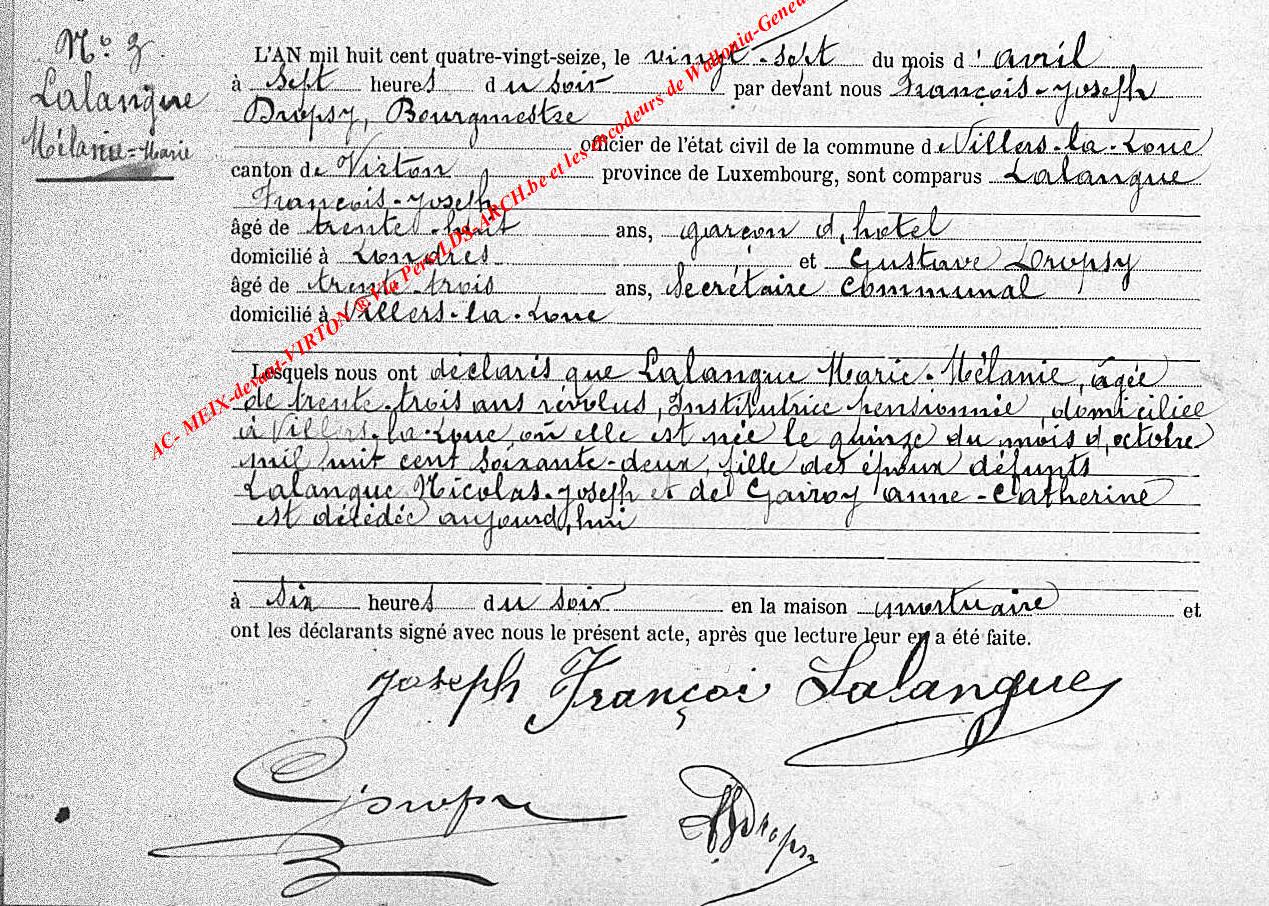 N° 3.
Lalangue
Mélanie-Marie
L'AN mil huit cent quatre-vingt-seize, le vingt-sept du mois d'avril
à sept heures du soir par devant nous François-Joseph
Dropsy, Bourgmestre
officier de l'état civil de la commune de Villers-la-Loue
canton de Virton province de Luxembourg, sont comparus Lalangue
François-Joseph
âgé de trente-huit ans, garçon d'hotel
domicilié à Londres et Gustave Dropsy
âgé de trente-trois ans, Secrétaire communal
domicilié à Villers-la-Loue
Lesquels nous ont déclarés que Lalangue Marie-Mélanie, âgée
de trente-trois ans révolus, Institutrice pensionnée, domiciliée
à Villers-la-Loue, où elle est née le quinze du mois d'octobre
mil huit cent soixante-deux, fille des époux défunts
Lalangue Nicolas-Joseph et de Gairoy Anne-Catherine
est décédée aujourd'hui
à six heures du soir en la maison mortuaire et
ont les déclarants signé avec nous le présent acte, après que lecture leur en a été faite.
Joseph François Lalangue
GDropsy
FJDropsy
AC- MEIX-devant-VIRTON ® Via Pers-LDS-ARCH.be et les encodeurs de Wallonia-Genea